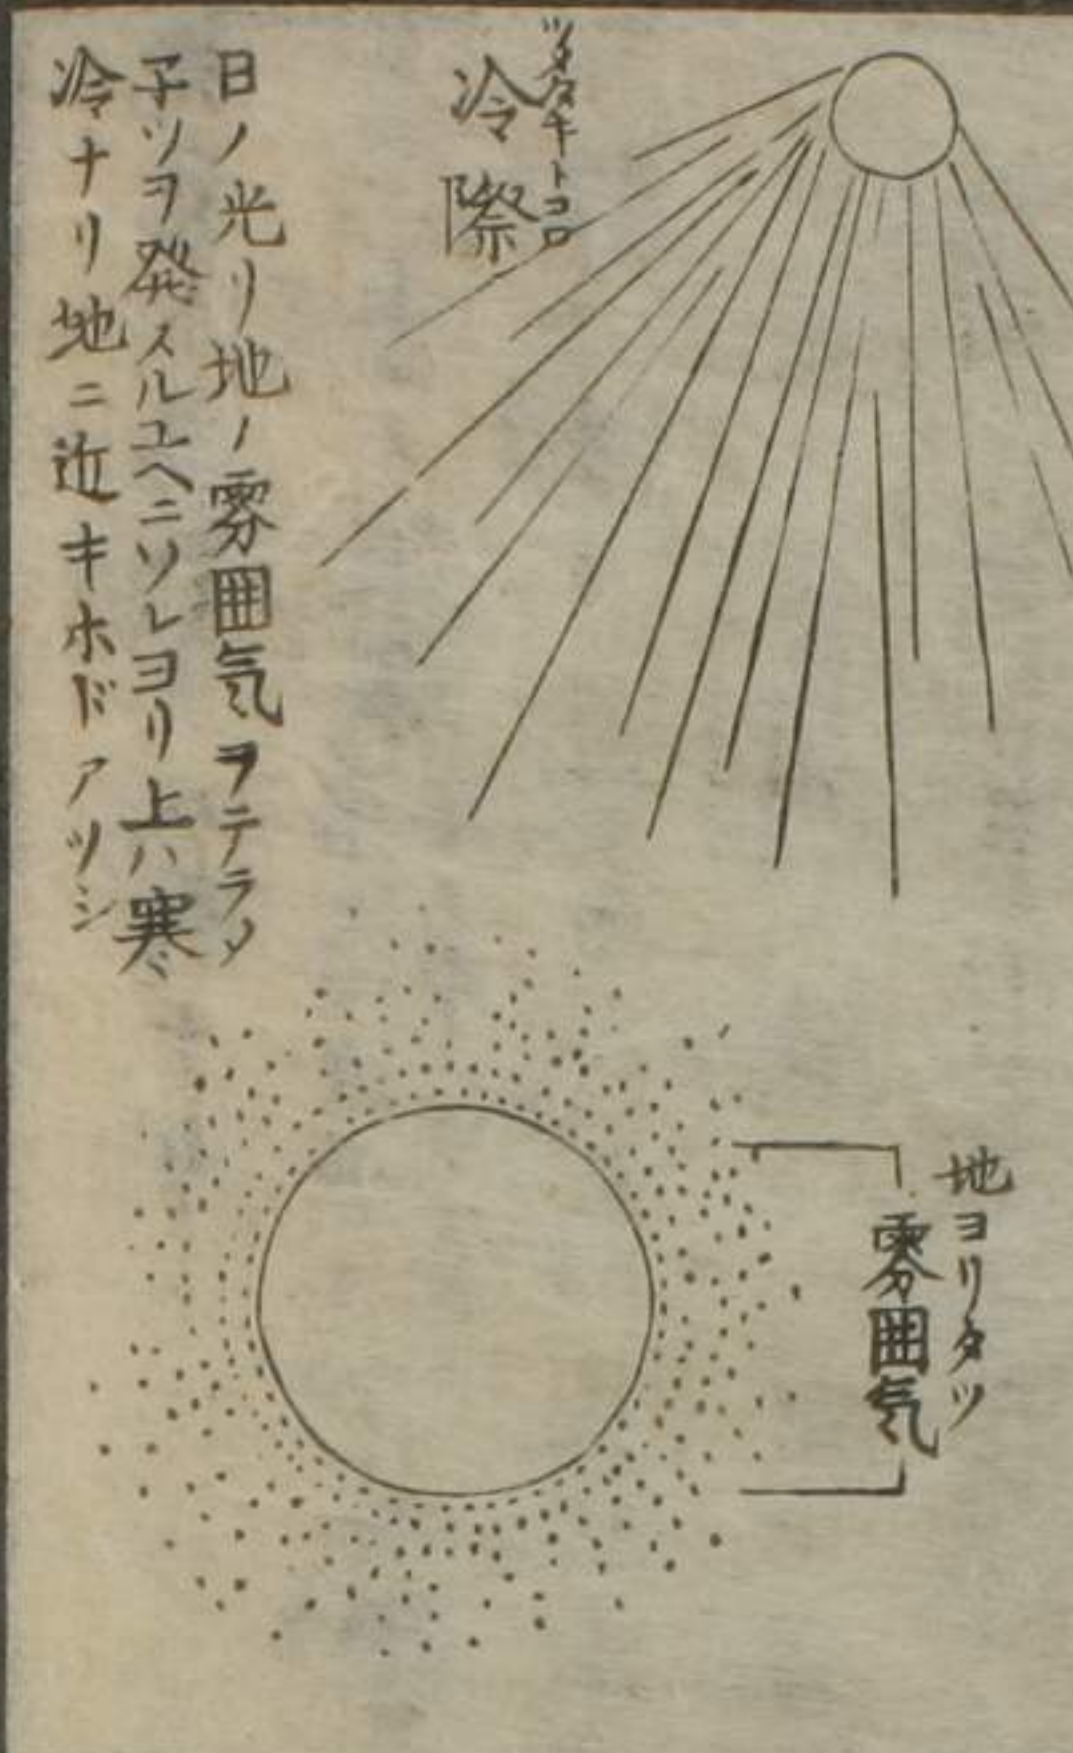 ツメタキトコロ
冷際
日ノ光リ地ノ雰囲気ヲテラ乄
子ツヲ発スルユヘニソレヨリ上ハ寒
冷ナリ地ニ近キホドアツシ
地ヨリタツ
雰囲気